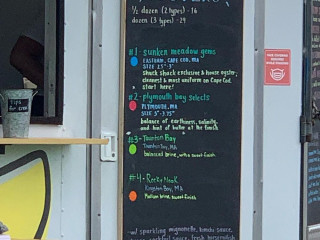 ½ dozen (2 types) - 16
dozen (3 types) - 29
#1 sunken meadow gems
EASTHAM, CAPE COD, MA
SIZE 2.5"-3"
Shuck Shack exclusive & house oyster,
cleanest & most uniform on Cape Cod.
start here!
#2- plymouth bay selects
PLYMOUTH, MA
SIZE 3"-3.75"
balance of earthiness, salinity,
and hint of butter at the finish
#3- Thurston Bay
MA
balanced brine, with sweet finish
#4- Rocky Nook
Kingston Bay, MA
Medium brine, sweet finish
w/ sparkling mignonette, house sauce,
cocktail sauce, fresh horseradish
TIPS